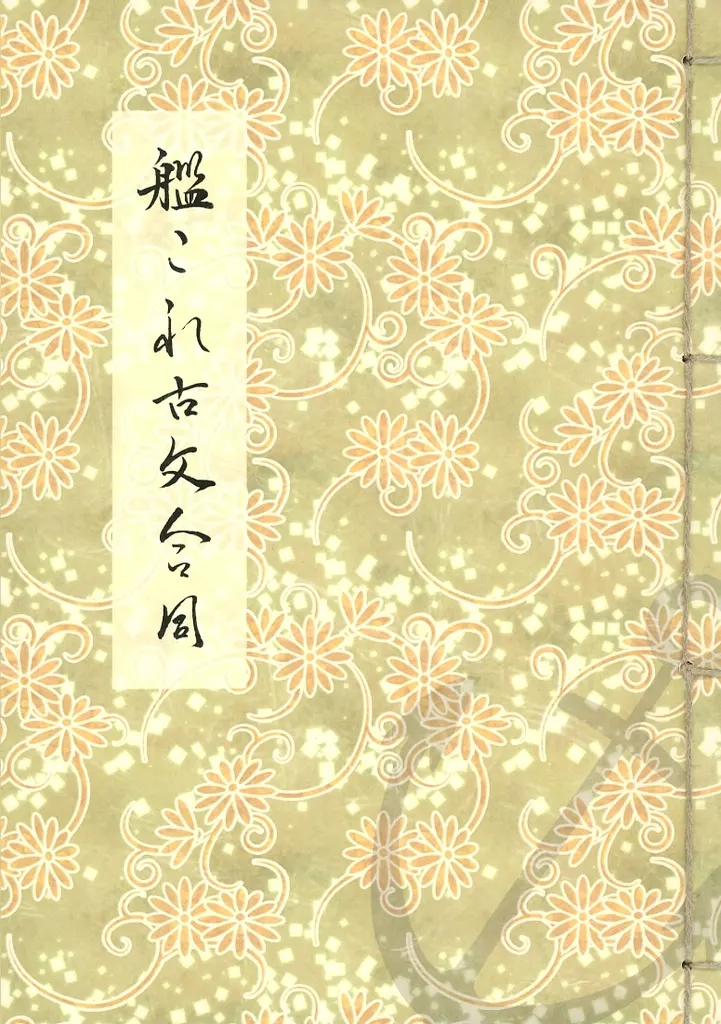 艦これ古文合同